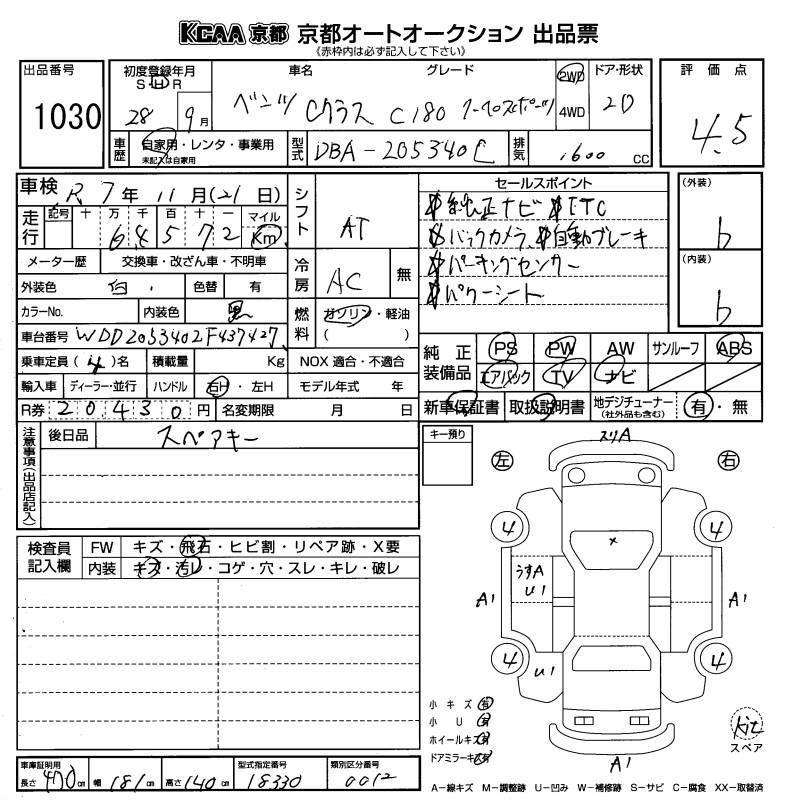 KCAA 京都 京都オートオークション 出品票
《赤枠内は必ず記入して下さい》
出品番号
1030
初度登録年月
S・H・R
28 9月
車名 グレード
ベンツ Cクラス C180 クーペスポーツ
2WD
4WD
ドア・形状
2D
評価点
4.5
車歴
自家用・レンタ・事業用
未記入は自家用
型式
DBA-205340C
排気
1600 CC
車検 R 7年 11月(21日)
走行
記号 十 万 千 百 十 一 マイル
6 8 5 7 2 Km
メーター歴 交換車・改ざん車・不明車
外装色 白 色替 有
カラーNo. 内装色 黒
車台番号 WDD2053402F437427
乗車定員 (4)名 積載量 Kg
輸入車 ディーラー・並行 ハンドル 右H・左H
R券 20430円 名変期限 月 日
シフト AT
冷房 AC 無
燃料 ガソリン・軽油
( )
NOX 適合・不適合
モデル年式 年
セールスポイント
純正ナビ ETC
バックカメラ 自動ブレーキ
パーキングセンサー
パワーシート
(外装)
b
(内装)
b
純正装備品
PS PW AW サンルーフ ABS
エアバック TV ナビ
新車保証書 取扱説明書 地デジチューナー
(社外品も含む) 有・無
注意事項(出品店記入)
後日品 スペアキー
検査員記入欄
FW キズ・飛石・ヒビ割・リペア跡・X要
内装 キズ・汚レ・コゲ・穴・スレ・キレ・破レ
キー預り
スリA
左 右
4 4
x
うすA
U1
A1 A1
4 4
U1
A1
小キズ 有
小U 有
ホイールキズ 有
ドアミラーキズ 有
Kit
スペア
車庫証明用
長さ 470cm 幅 181cm 高さ 140cm
型式指定番号
18330
類別区分番号
0012
A−線キズ M−調整跡 U−凹み W−補修跡 S−サビ C−腐食 XX−取替済